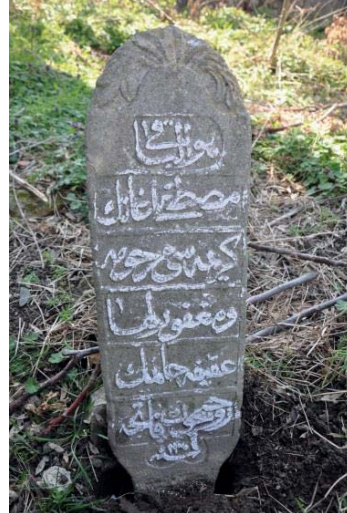 هو الباقی
مصطفی اغانك
كریمه سی مرحومه
ومغفور لها
عفیفه خانمك
روحیچون فاتحه
سنه